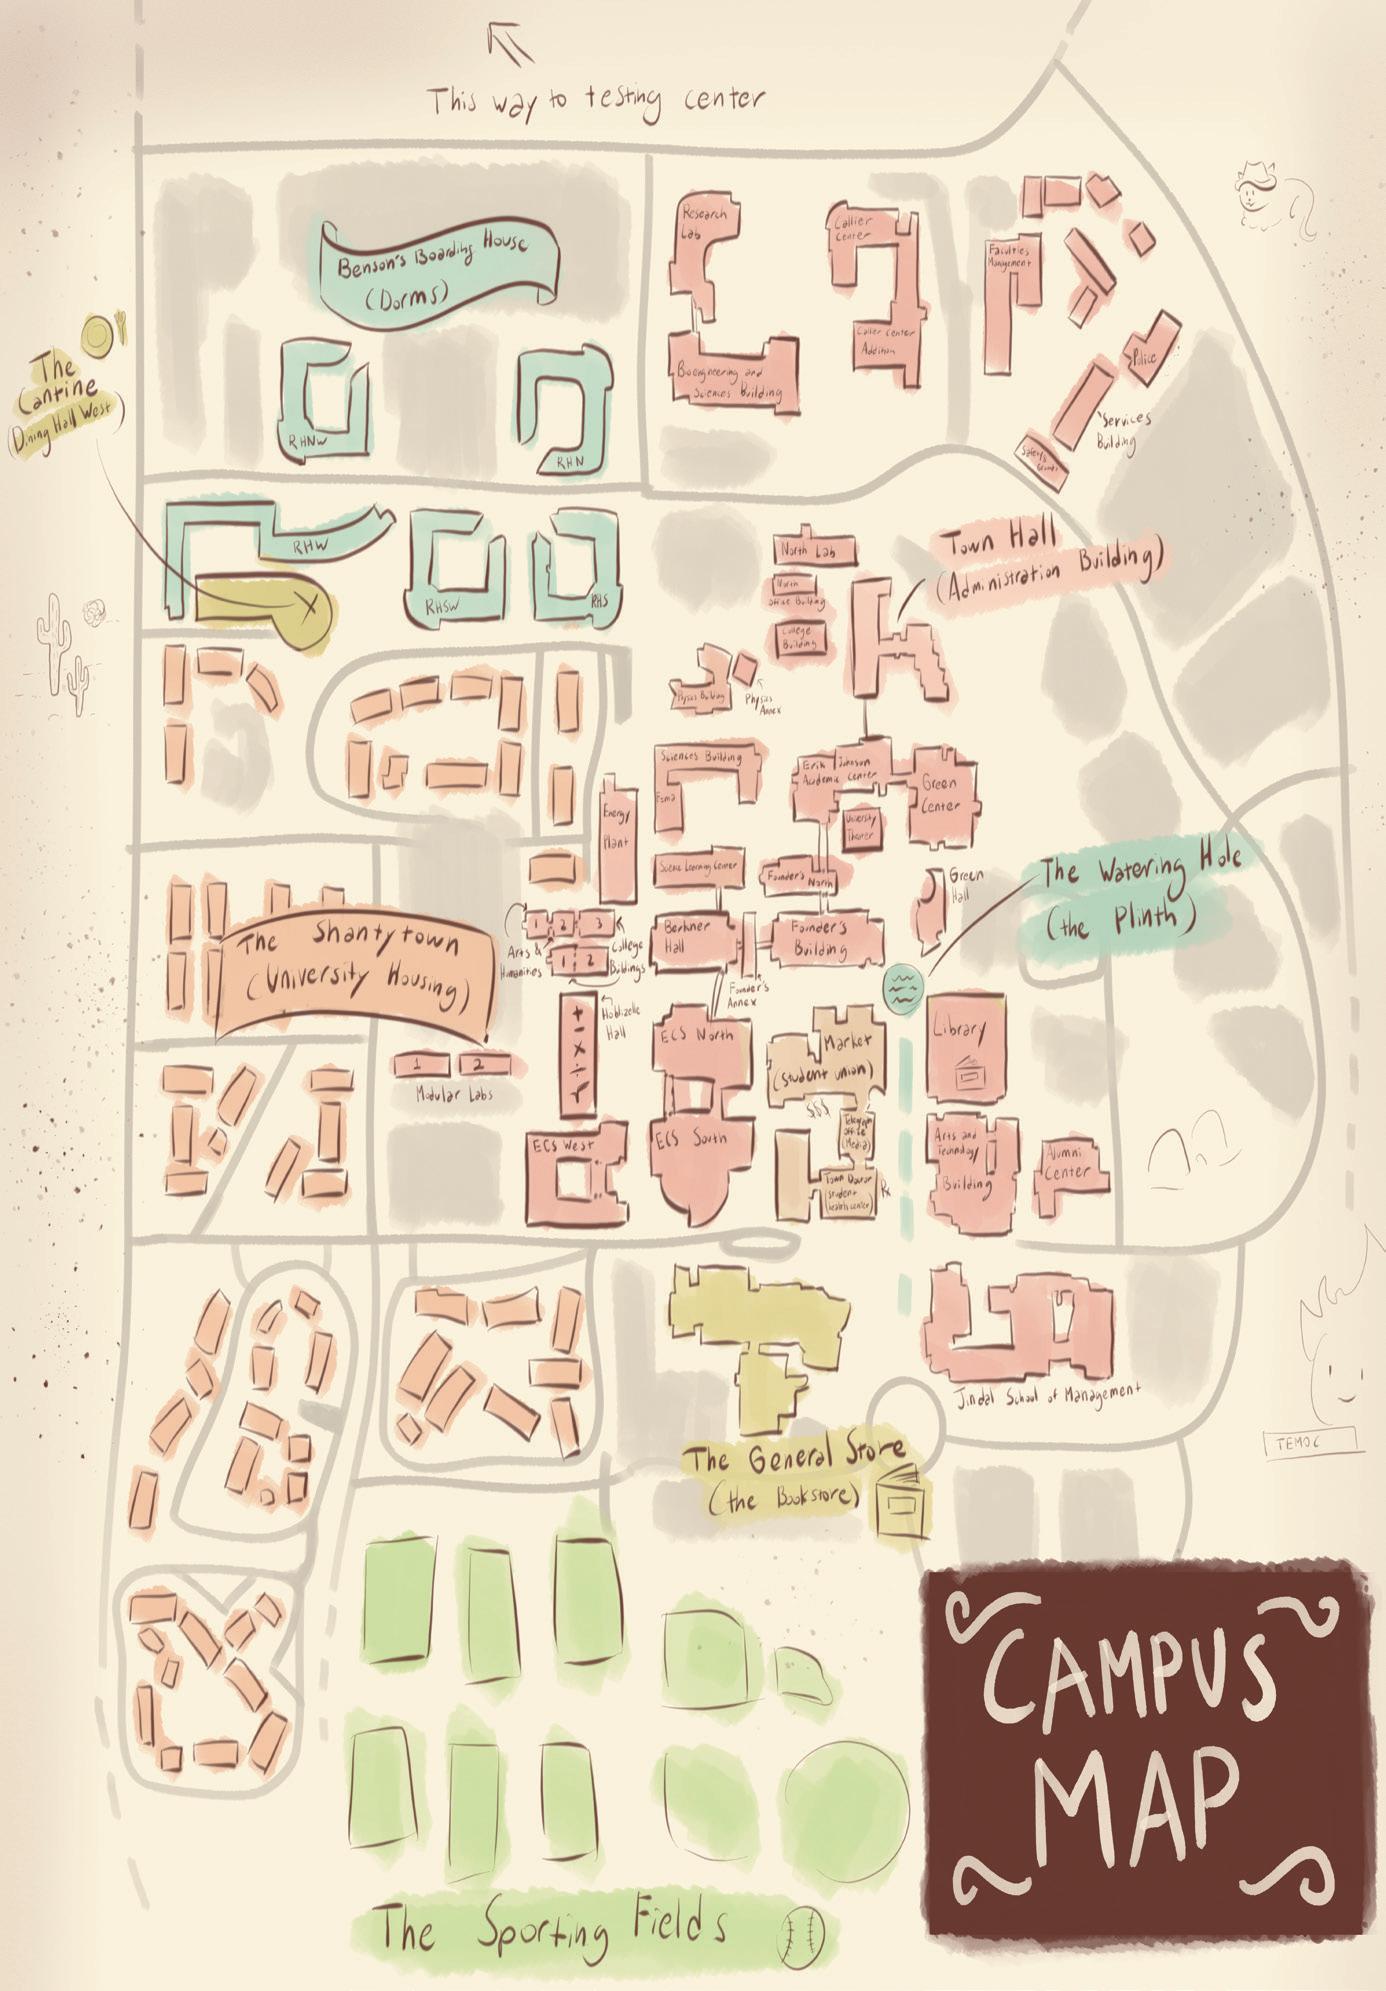 This way to testing center
Benson's Boarding House
(Dorms)
Research
Lab
Callier
Center
Faculties
Management
Callier Center
Addition
Bioengineering and
Sciences Building
Police
Services
Building
The
Cantine
(Dining Hall West)
RHNW
RHN
RHW
RHSW
RHS
North Lab
North
Office Building
College
Building
Town Hall
(Administration Building)
Physics Building
Physics
Annex
Sciences Building
Erik Johnson
Academic Center
Green
Center
University
Theater
Energy
Plant
Science Learning Center
Founder's North
Green
Hall
The Watering Hole
(the Plinth)
The Shantytown
(University Housing)
1 2 3
Arts &
Humanities
1 2
College
Buildings
Berkner
Hall
Founder's
Building
Founder's
Annex
Hoblitzelle
Hall
ECS North
Market
(student union)
$$$
Library
1 2
Modular Labs
ECS West
ECS South
Telegraph
office
(Media)
Town Doctor
(student
health center)
Rx
Arts and
Technology
Building
Alumni
Center
Jindal School of Management
TEMOC
The General Store
(the Bookstore)
The Sporting Fields
CAMPUS
MAP